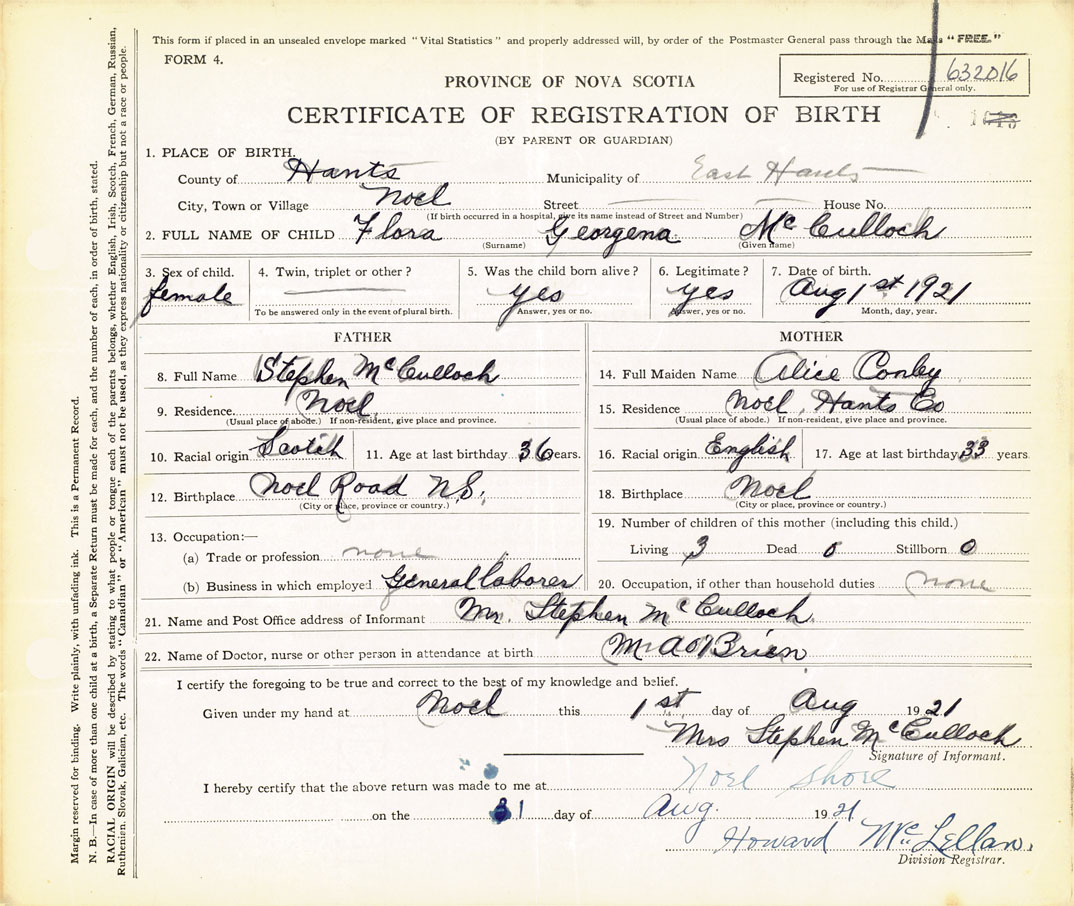 This form if placed in an unsealed envelope marked "Vital Statistics" and properly addressed will, by order of the Postmaster General pass through the Mails "FREE."
FORM 4.
Registered No. 632016
For use of Registrar General only.
PROVINCE OF NOVA SCOTIA
CERTIFICATE OF REGISTRATION OF BIRTH
(BY PARENT OR GUARDIAN)
1. PLACE OF BIRTH.
County of Hants Municipality of East Hants
City, Town or Village Noel Street House No.
(If birth occurred in a hospital, give its name instead of Street and Number)
2. FULL NAME OF CHILD Flora Georgena McCulloch
(Surname) (Given name)
3. Sex of child. 4. Twin, triplet or other? 5. Was the child born alive? 6. Legitimate? 7. Date of birth.
female yes yes Aug 1st 1921
To be answered only in the event of plural birth. Answer, yes or no. Answer, yes or no. Month, day, year.
FATHER MOTHER
8. Full Name Stephen McCulloch 14. Full Maiden Name Alice Conley
9. Residence. Noel 15. Residence Noel, Hants Co
(Usual place of abode.) If non-resident, give place and province. (Usual place of abode.) If non-resident, give place and province.
10. Racial origin Scotch 11. Age at last birthday 36 years. 16. Racial origin English 17. Age at last birthday 33 years
12. Birthplace Noel Road N.S. 18. Birthplace Noel
(City or place, province or country.) (City or place, province or country.)
13. Occupation:— 19. Number of children of this mother (including this child.)
(a) Trade or profession none Living 3 Dead 0 Stillborn 0
(b) Business in which employed General laborer 20. Occupation, if other than household duties none
21. Name and Post Office address of Informant Mr. Stephen McCulloch
22. Name of Doctor, nurse or other person in attendance at birth O'Brien
I certify the foregoing to be true and correct to the best of my knowledge and belief.
Given under my hand at Noel this 1st day of Aug 1921
Mrs Stephen McCulloch
Signature of Informant.
I hereby certify that the above return was made to me at Noel Shore
on the 31 day of Aug. 1921
Howard McLellan.
Division Registrar.
Margin reserved for binding. Write plainly, with unfading ink. This is a Permanent Record.
N. B.—In case of more than one child at a birth, a Separate Return must be made for each, and the number of each, in order of birth, stated.
RACIAL ORIGIN will be described by stating to what people or tongue each of the parents belongs, whether English, Irish, Scotch, French, German, Russian,
Ruthenien, Slovak, Galician, etc. The words "Canadian" or "American" must not be used, as they express nationality or citizenship but not a race or people.